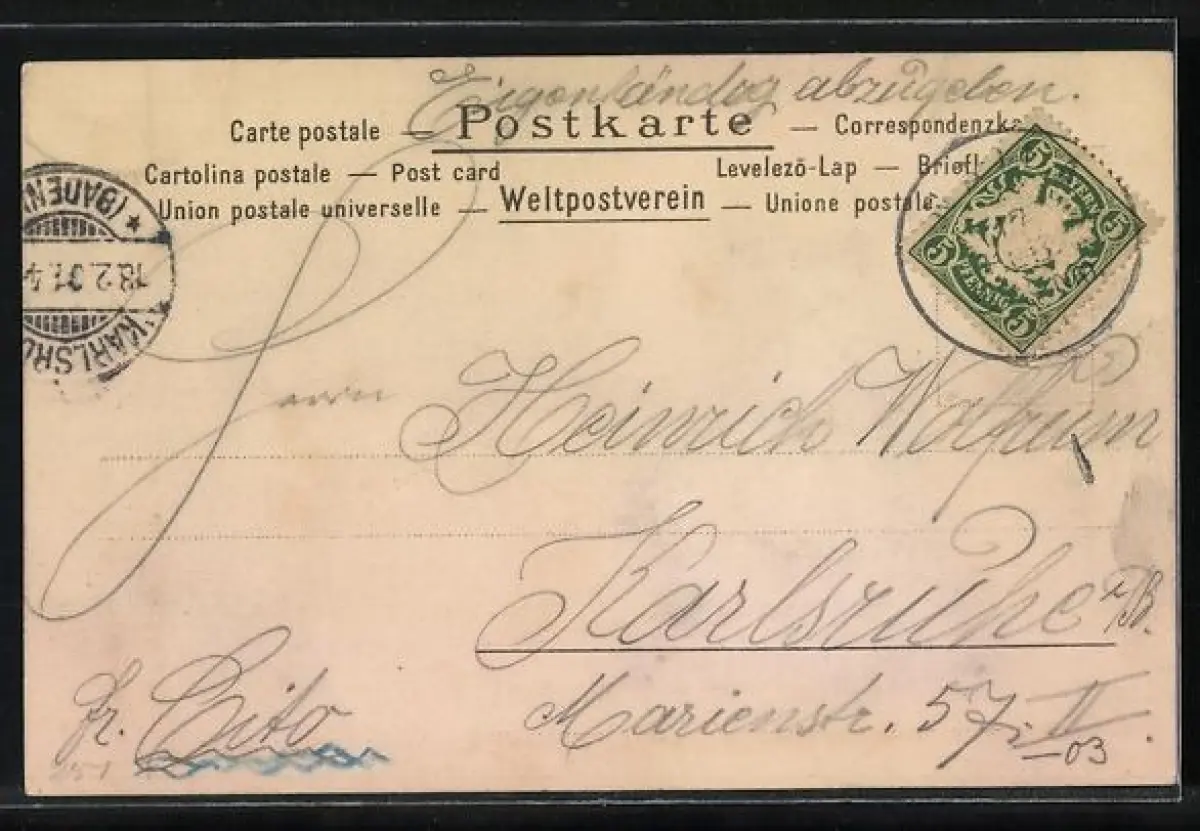 Eigenhändig abzugeben.
Carte postale — Postkarte — Correspondenzka
Cartolina postale — Post card Levelező-Lap — Briefl
Union postale universelle — Weltpostverein — Unione postale
5 BAYERN 5 PFENNIG 5 5
(BADEN) *
18.2.01.4
KARLSRU
Herrn Heinrich Wolfrum
Karlsruhe i/B.
Fr. Cito Marienstr. 57. II
-03